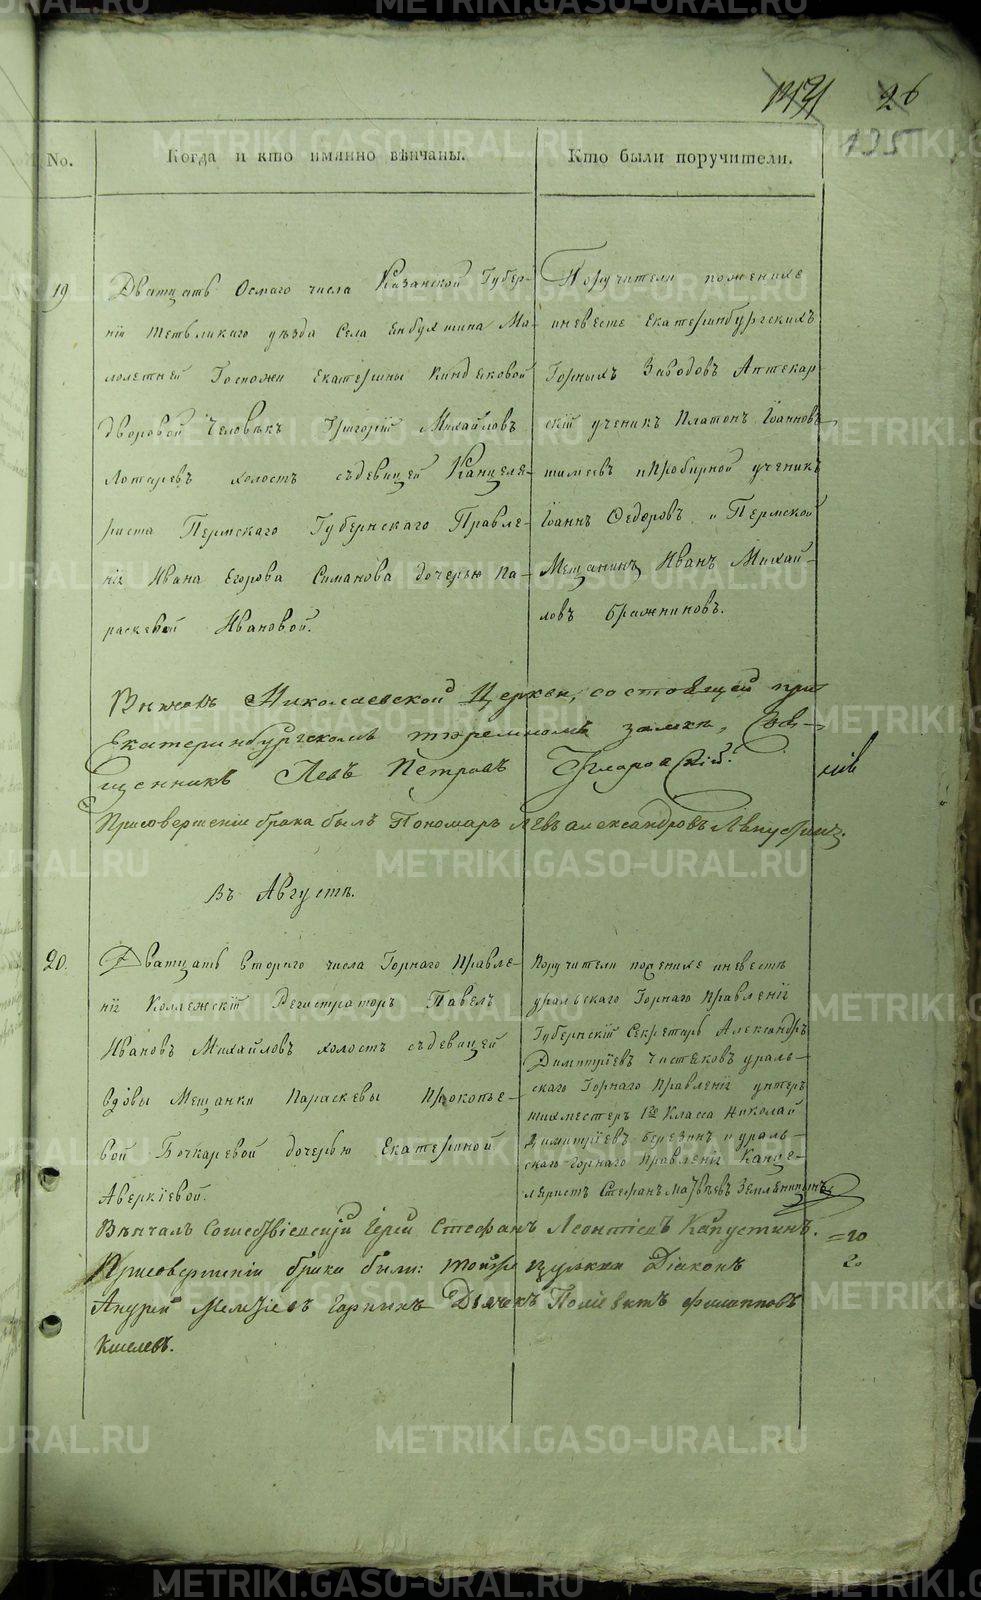 26
135
No.
Когда и кто имянно вѣнчаны.
Кто были поручители.
19
Дватцать Осмаго числа Казанской Губер-
ніи Тетьюшскаго уѣзда Села Ма-
лолетней Госпожи Екатерины Киндяковой
дворовой Человѣкъ Григорій Михайловъ
холостъ съдевицей Канцеля-
риста Пермскаго Губернскаго Правле-
ніи Ивана Егорова Симанова дочерью Па-
раскевой Ивановой.
Поручители поженихе
иневесте Екатеринбургскихъ
Горныхъ Заводовъ Аптекар-
скій ученикъ Платонъ Іоанновъ
иПробирной ученикъ
Іоаннъ Федоровъ и Пермской
Мещанинъ Иванъ Михай-
ловъ Бражниковъ.
Вѣнчалъ Николаевской Церкви, состоящей при
Екатеринбургскомъ тюремномъ замкѣ, Свя-
щенникъ Левъ Петровъ
Присовершеніи брака былъ Пономарь Левъ Александровъ
Въ Августѣ.
20.
Дватцать втораго числа Горнаго Правле-
ніи Коллежскій Регистраторъ Павелъ
Ивановъ Михайловъ холостъ съдевицей
вдовы Мещанки Параскевы Прокопье-
вой Бочкаревой дочерью Екатериной
Аверкіевой.
Поручители поженихе иневестѣ
уральскаго Горнаго Правленіи
Губернскій Секретарь Александръ
Димитріевъ Чистяковъ ураль-
скаго Горнаго Правленіи унтеръ
шихмейстеръ 1го Класса Николай
Димитріевъ Березинъ и ураль-
скаго Горнаго Правленіи Канце-
ляристъ Стефанъ Матвѣевъ Земляницынъ
Вѣнчалъ Сошествіевскій Іерей Стефанъ Леонтіевъ Капустинъ.
=20
20
Присовершеніи брака были: тойже церкви Діаконъ
Андрей Дьячекъ Филипповъ
Киселевъ.
METRIKI.GASO-URAL.RU